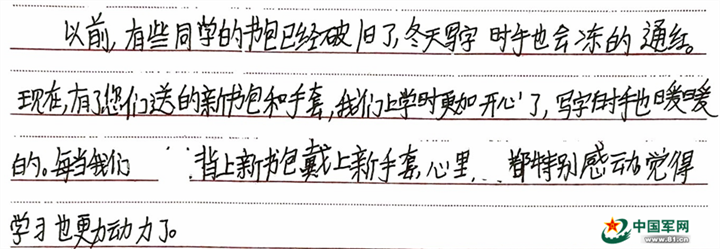 以前,有些同学的书包已经破旧了,冬天写字时手也会冻的通红。
现在,有了您们送的新书包和手套,我们上学时更加开心了,写字时手也暖暖
的。每当我们背上新书包戴上新手套,心里都特别感动觉得
学习也更动力了。
中国军网
www.81.cn